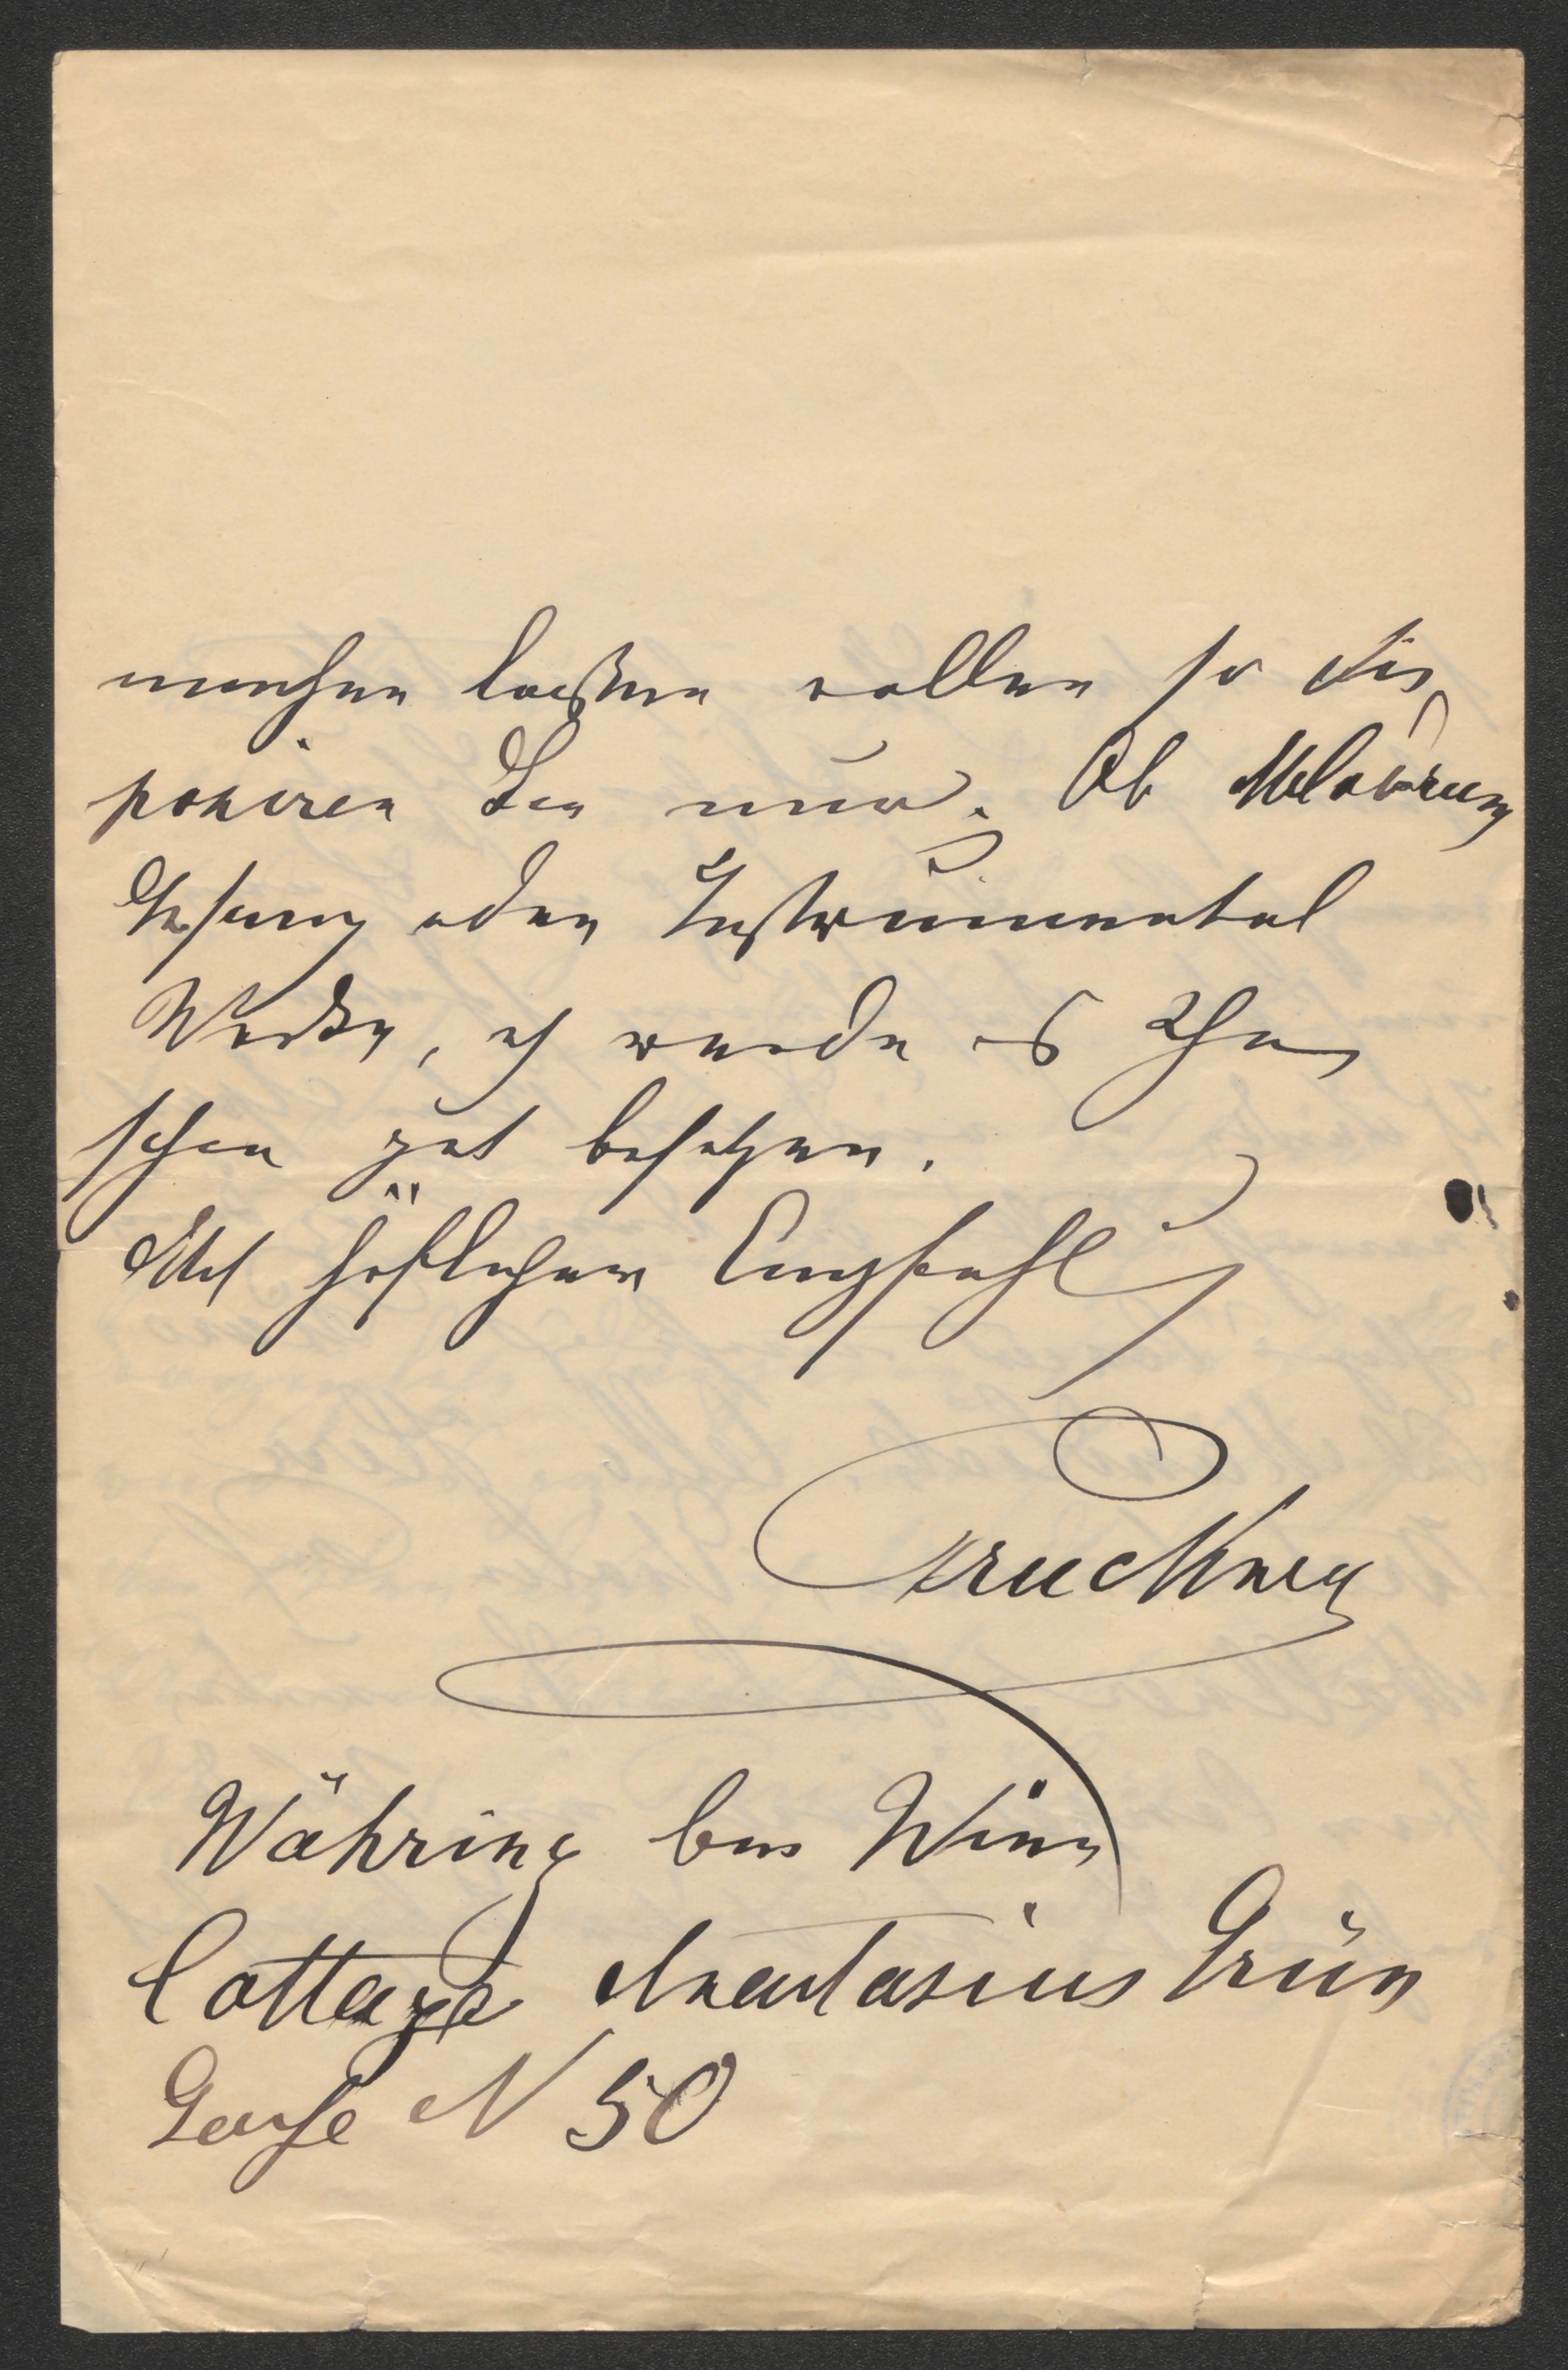 machen laßen wollen so dis
poniren Sie nur. Ob Clavier
Gesang oder Instrumental
Werke, ich werde es Ihnen
schon gut besetzen.
Mit höflicher Empfehl
Pruckner
Währing bei Wien
Cottage Anastasius Grün
Gasse N 50